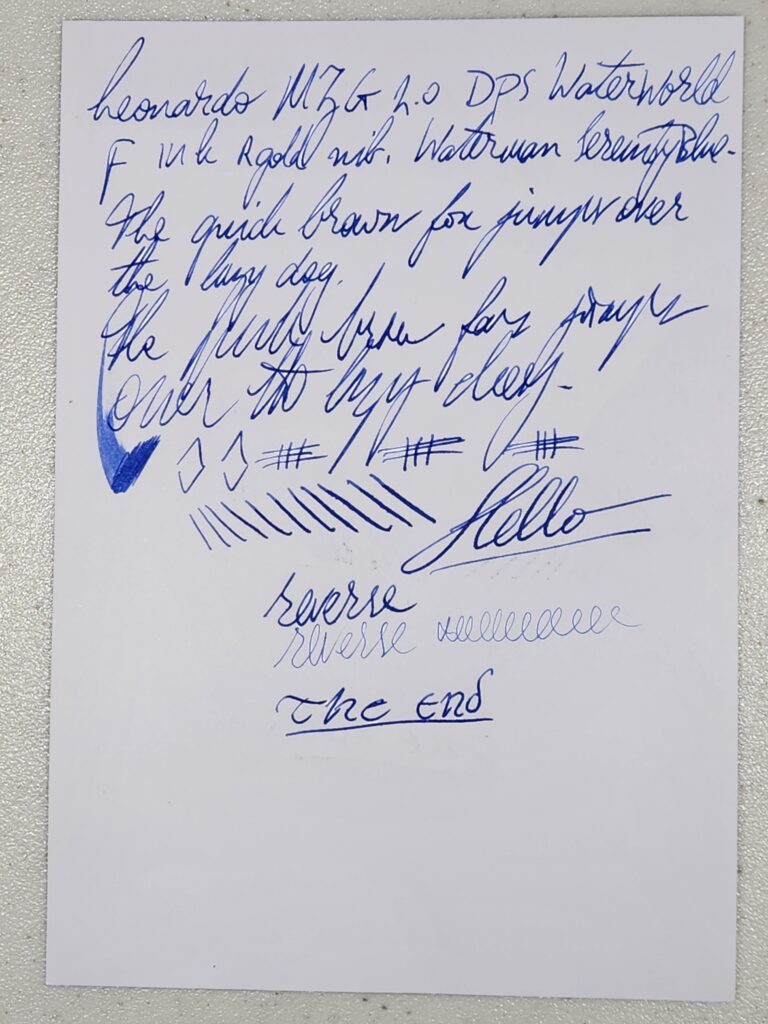 Leonardo MZG 2.0 DPS Waterworld
F 14k Rgold nib. Waterman Serenity Blue.
The quick brown fox jumps over
the lazy dog.
The quick brown fox jumps
over the lazy dog.
Hello
reverse
reverse
The End